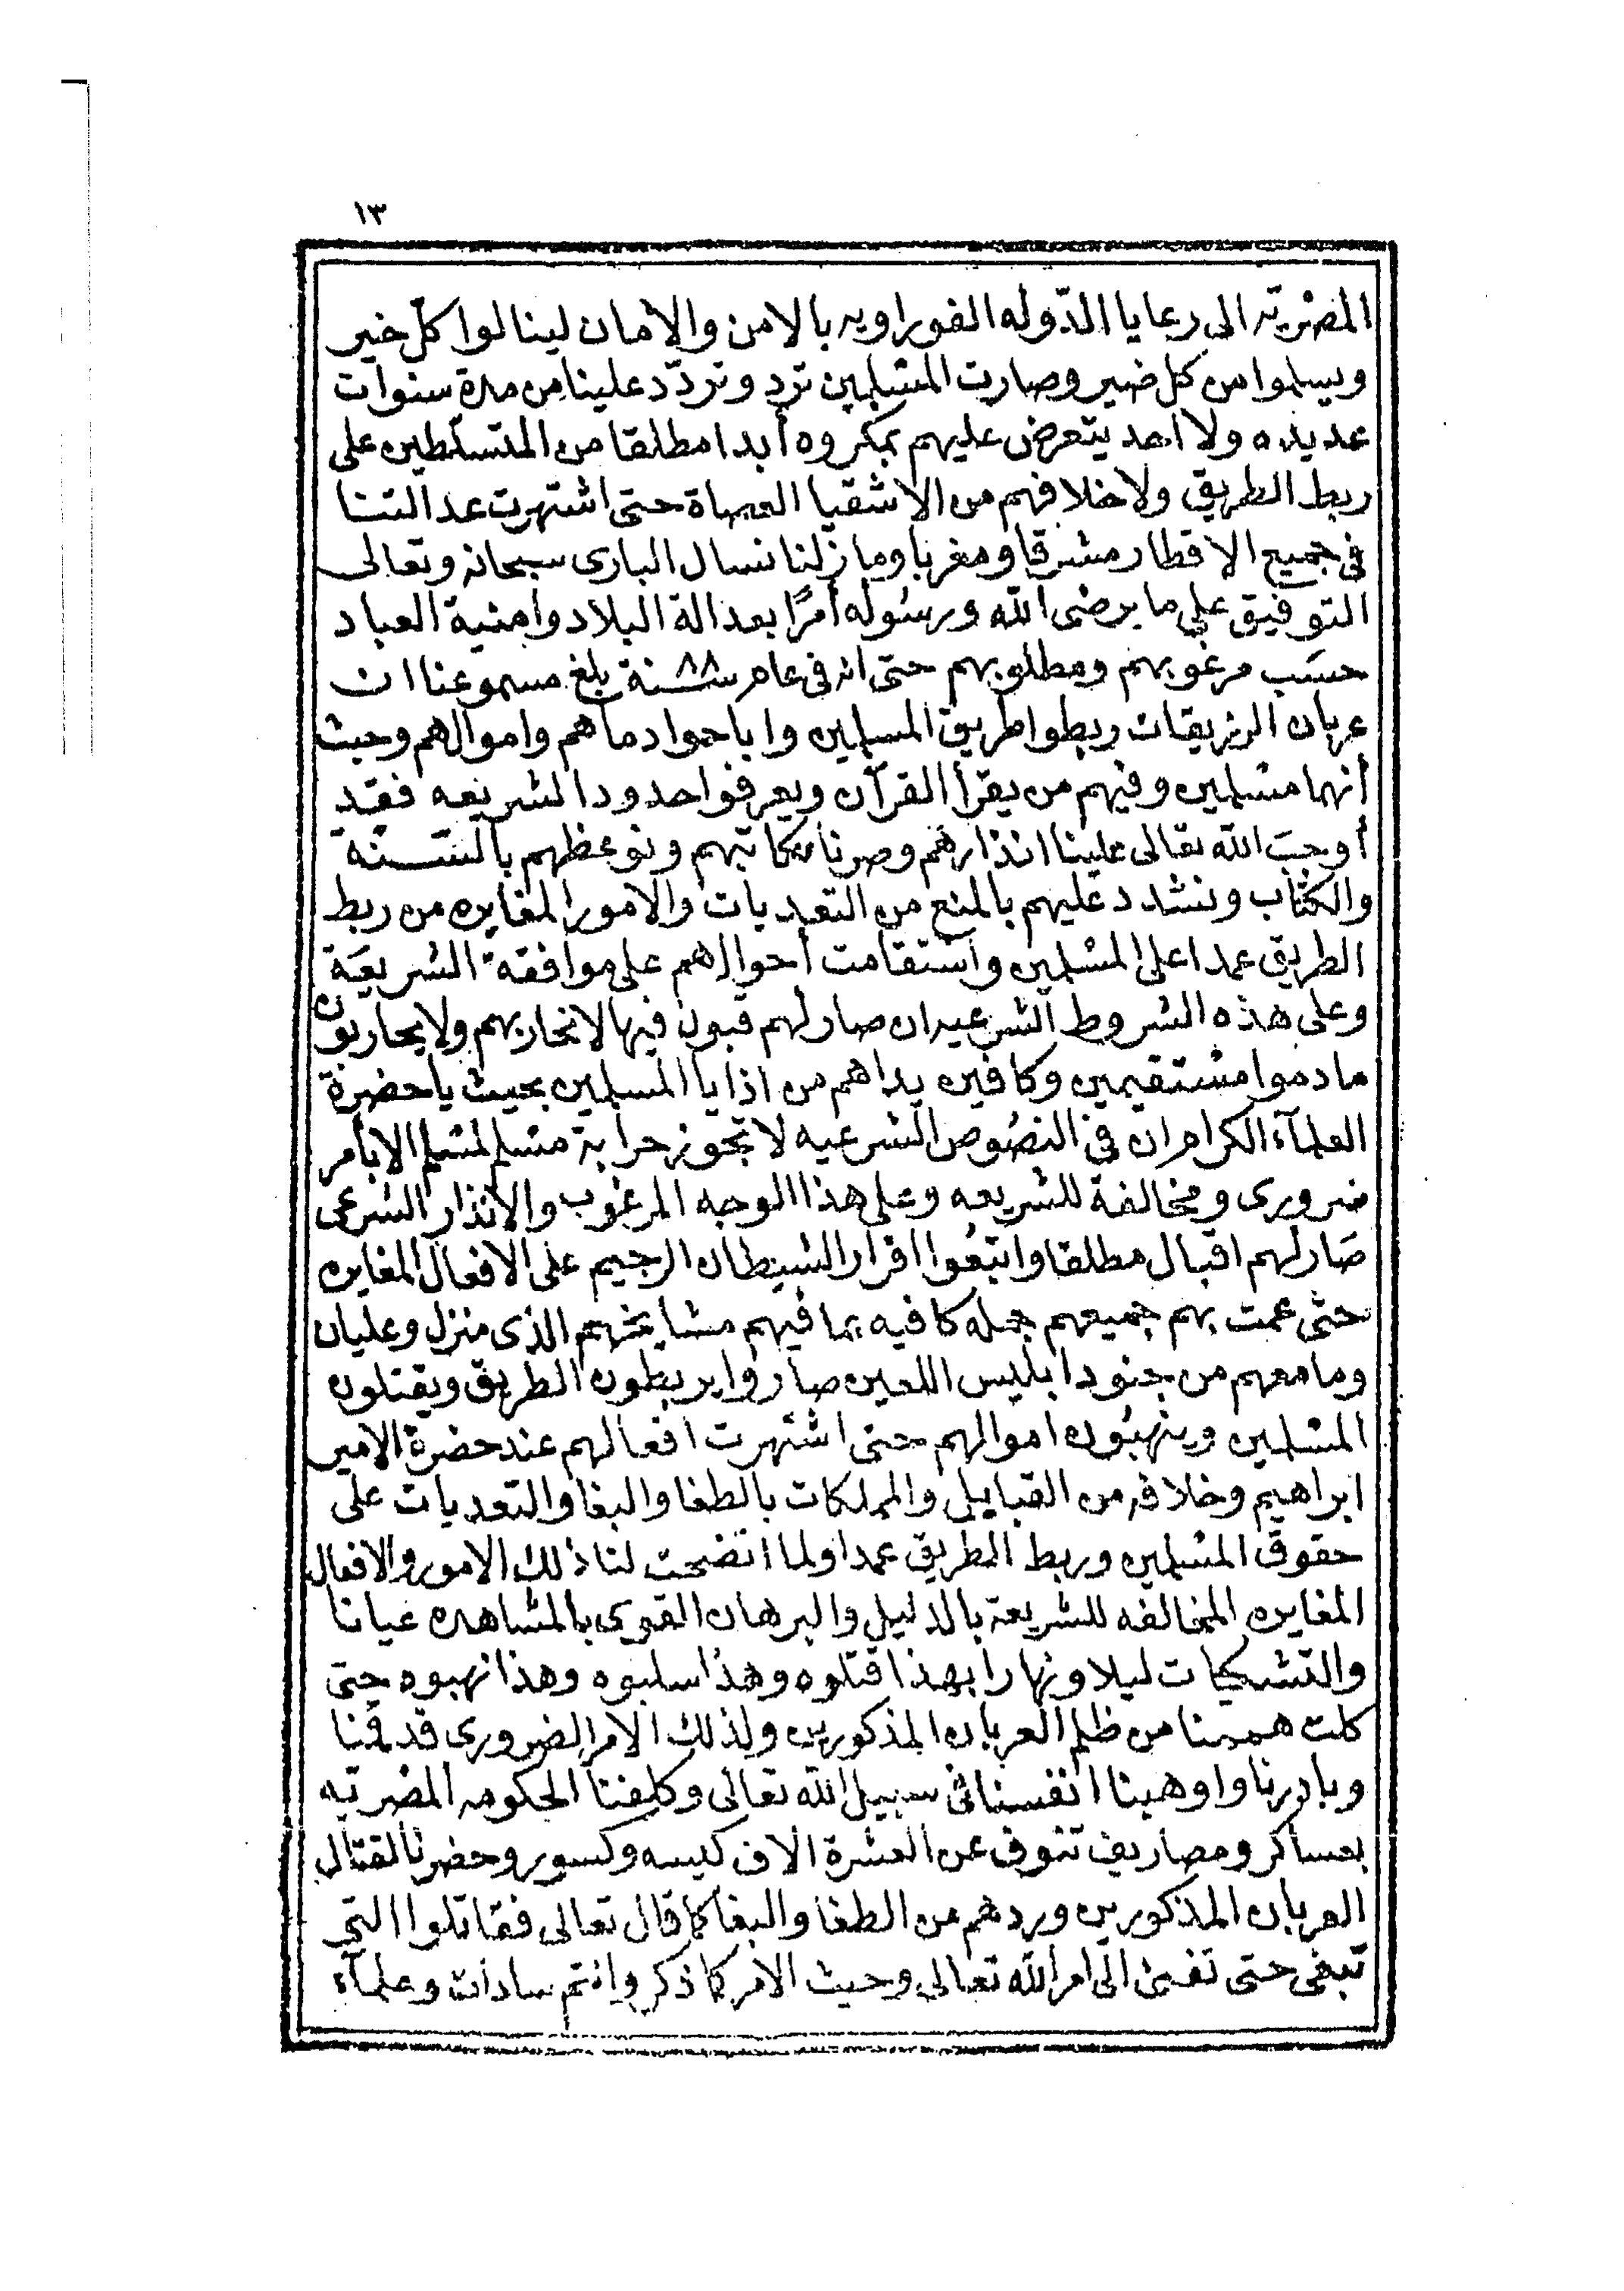 ١٣
المصْريّه الى رعايا الدّوله الفوراويه بالامن والامان لينالوا كلّ خير
ويسلموا من كل ضير وصارت المسْلمين ترد وتردّد علينا من مدة سنوات
عديده ولا احد يتعرض عليهم بمكروه أبدا مطلقا من المتسلّطين على
ربط الطريق ولا خلافهم من الاشقيا العصاة حتى اشتهرت عدالتنا
في جميع الاقطار مشرقا ومغربا وما زلنا نسال البارى سبحانه وتعالى
التوفيق على ما يرضى الله ورسُوله أمرًا بعدالة البلاد وامنية العباد
حسَب مرغوبهم ومطلوبهم حتى انه فى عام سنة ٨٨ بلغ مسموعنا ان
عربان الرزيقات ربطوا طريق المسلمين واباحوا دماهم واموالهم وحيث
أنهما مسْلمين وفيهم من يقرأ القرآن ويعرفوا حدود الشريعه فقد
أوجبَ الله تعالى علينا انذارهم وصرنا نكاتبهم ونوعظهم بالسّنّة
والكتاب ونشدد عليهم بالمنع من التعديات والامور المغايره من ربط
الطريق عمدا على المسْلمين واستقامت أحوالهم على موافقة الشريعَة
وعلى هذه الشروط الشرعيه ان صار لهم قبون فيها لا نحاربهم ولا يحاربون
ما دموا مسْتقيمين وكافين يداهم من اذايا المسلمين بحيث يا حضرة
العلمآء الكرام ان في النصُوص الشرعيه لا تجوز حرابة مسْلم لمسْلم الا بأمر
ضرورى ومخالفة للشريعه وعلى هذا الوجه المرغوب والانذار الشرعى
صَار لهم اقبال مطلقا واتبعُوا اقرار الشيطان الرجيم على الافعال المغايره
حتى عمت بهم جميعهم جمله كافيه بما فيهم مشايخهم الذى منزل وعليان
وما معهم من جنود ابليس اللعين صاروا يربطون الطريق ويقتلون
المسْلمين وينهبُون اموالهم حتى اشتهرت افعالهم عند حضرة الامير
ابراهيم وخلافه من القبايل والمملكات بالطغا والبغا والتعديات على
حقوق المسْلمين وربط الطريق عمدا ولما اتضحت لنا ذلك الامور والافعال
المغايره المخالفه للشريعة بالدليل والبرهان القوى بالمشاهده عيانا
والتشكيات ليلا ونهارا بهذا قتلوه وهذا سلبوه وهذا نهبوه حتى
كلت هممنا من ظلم العربان المذكورين ولذلك الامر الضرورى قد قمنا
وبادرنا واوهبنا انفسنا فى سبيل الله تعالى وكلفنا الحكومه المصْريّه
بعساكر ومصاريف تنوف عن العشرة الاف كيسه وكسور وحضرنا لقتال
العربان المذكورين وردهم من الطغا والبغا كما قال تعالى فقاتلوا التى
تبغى حتى تفئ الى امر الله تعالى وحيث الامر كما ذكر وانتم سادات وعلمآء